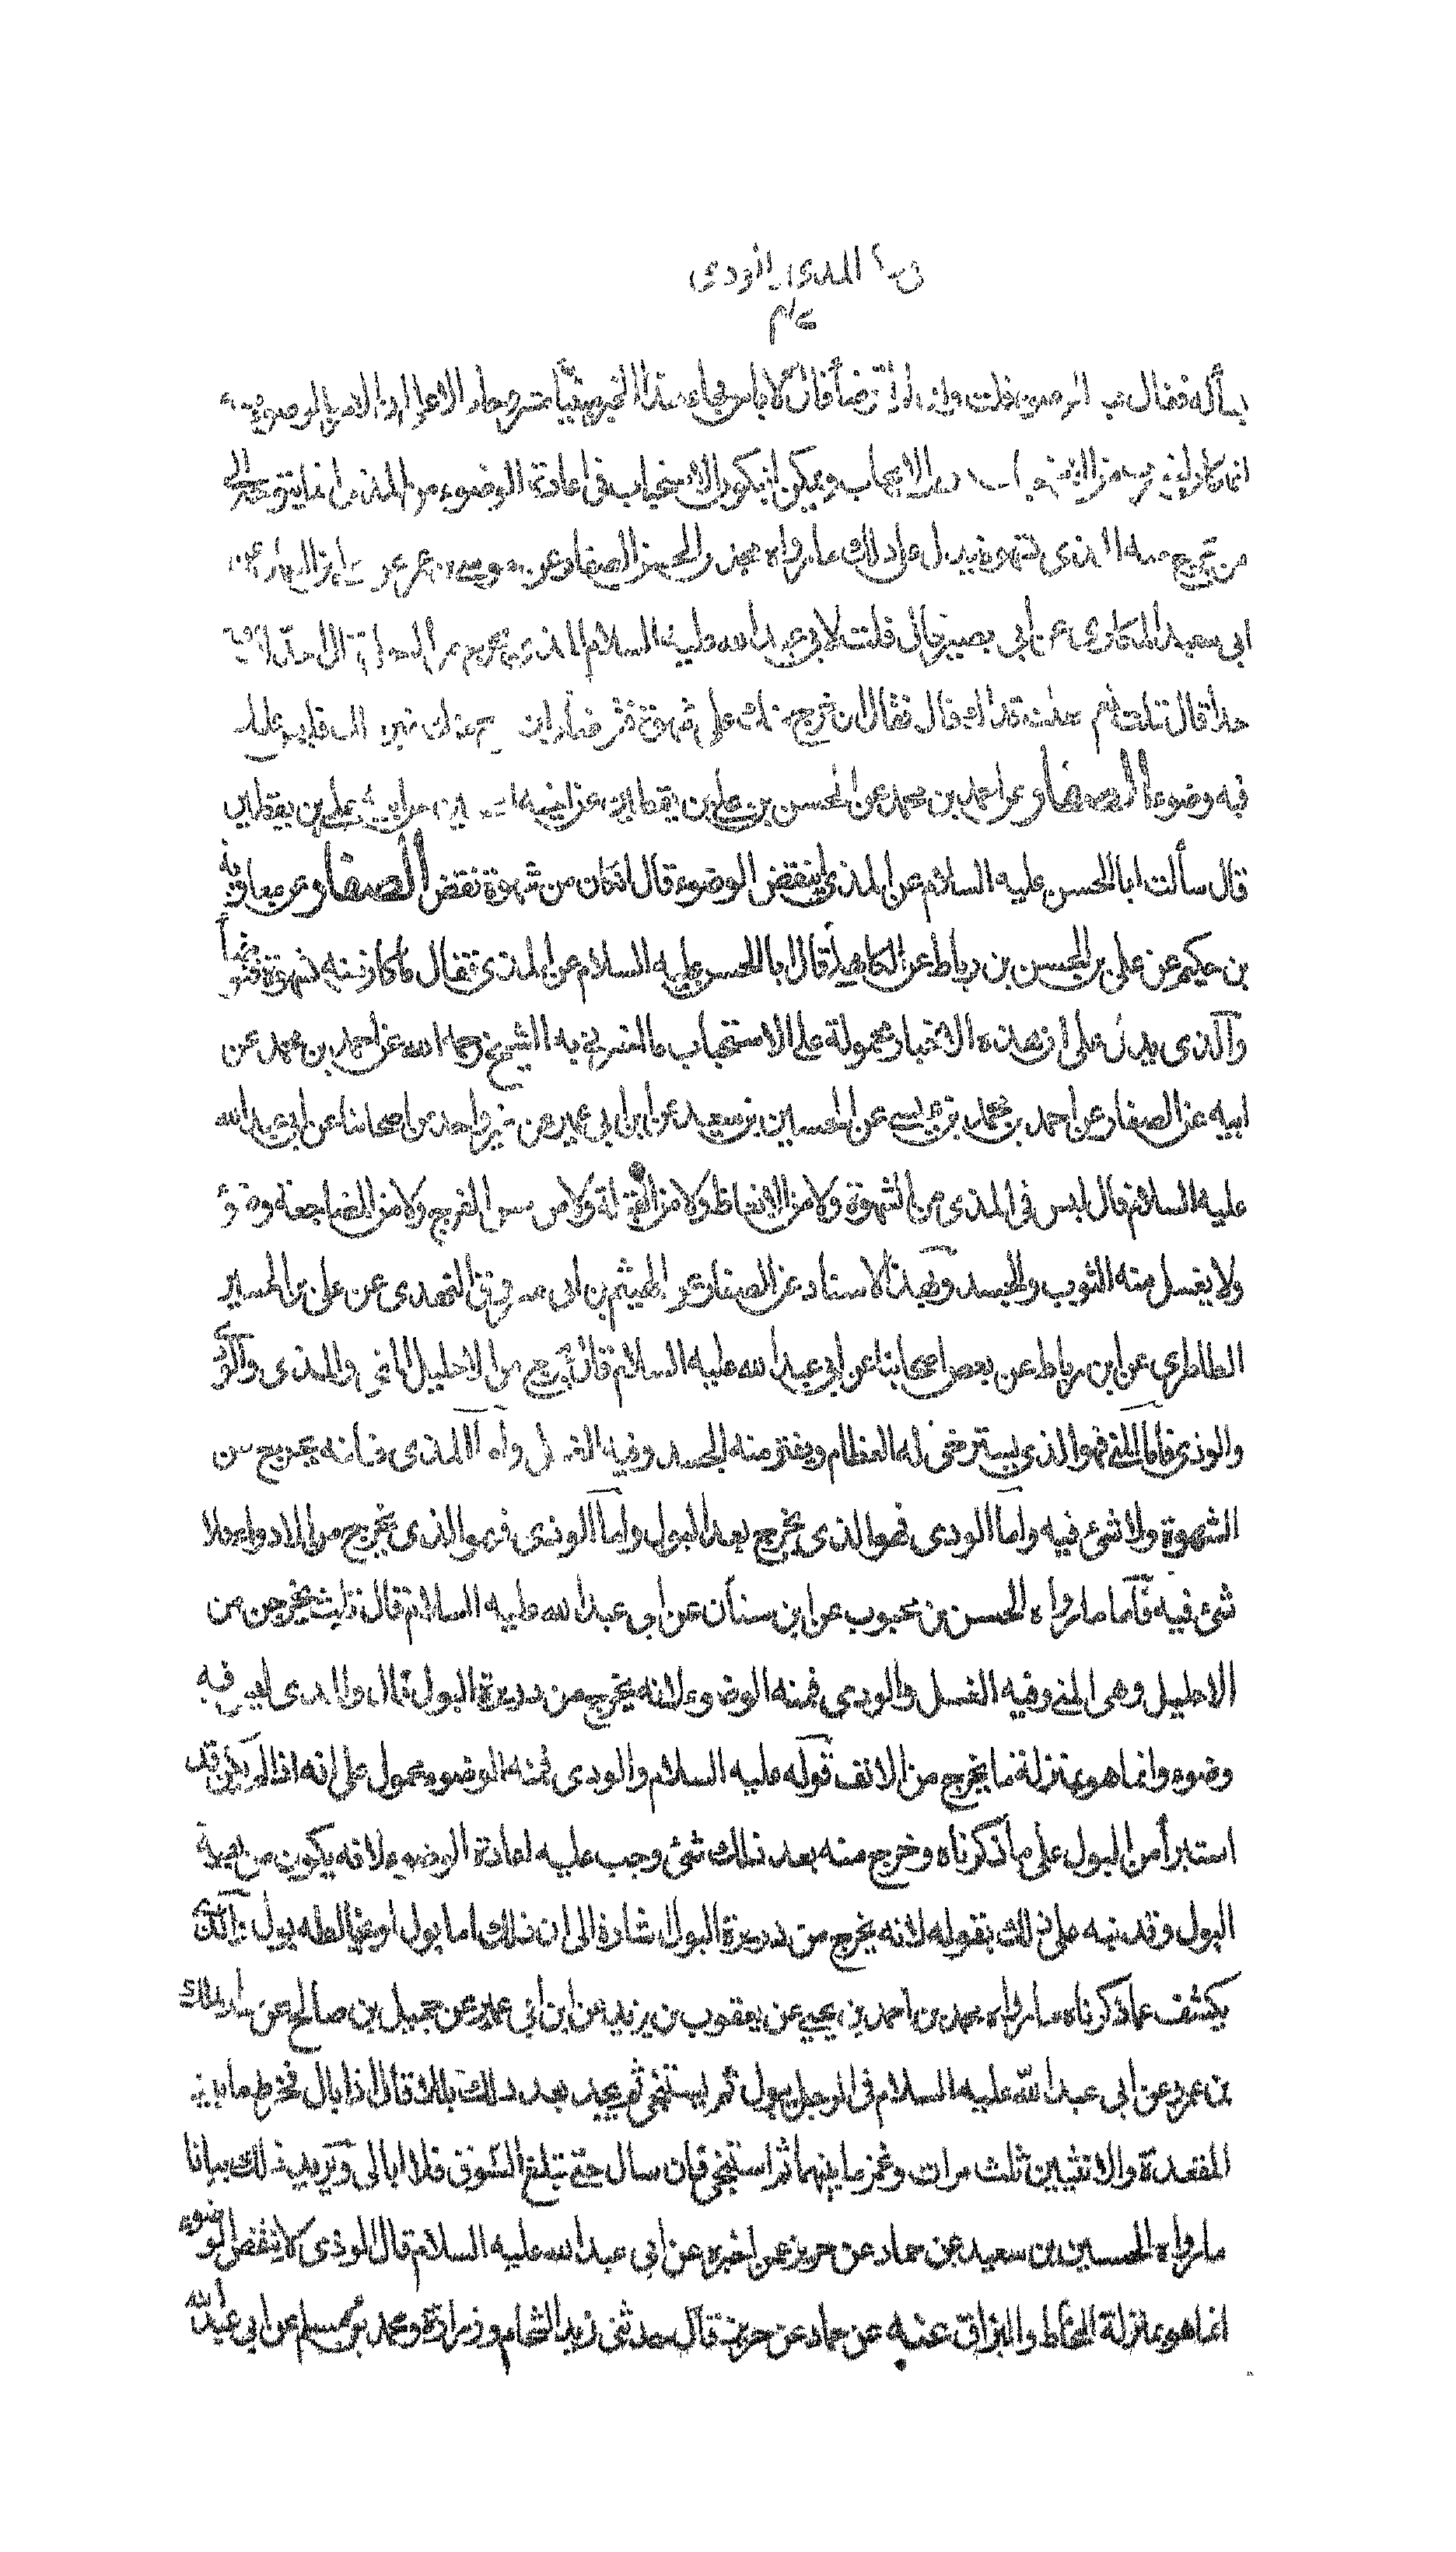 المذى والودى
يسأله فقال فيه الوضوء قلت وان لم اتوضأ قال لا باس فجاء هذا الخبر مبينا مشروحا
انما كان لضرب من الايجاب ويمكن ان يكون الاستحباب فى اعادة الوضوء من المذى انما يتوجه الى
من يخرج منه المذى بشهوة يدل على ذلك ما رواه محمد بن الحسن الصفار عن موسى بن عمر عن على بن النعمان عن
ابى سعيد المكارى عن ابى بصير قال قلت لابى عبد الله عليه السلام المذى يخرج من الرجل قال احد لك فيه
حدا قال قلت نعم جعلت فداك قال فقال ان خرج منك على شهوة فتوضأ وان خرج منك على غير ذلك فليس عليك
فيه وضوء الصفار عن احمد بن محمد عن الحسن بن على بن يقطين عن اخيه الحسين عن ابيه على بن يقطين
قال سألت ابا الحسن عليه السلام عن المذى اينقض الوضوء قال ان كان من شهوة نقض الصفار عن معاوية
بن حكيم عن على بن الحسن بن رباط عن الكاهلى قال ابا الحسن عليه السلام عن المذى فقال ما كان منه لشهوة فتوضأ
والذى يدل على ان هذه الاخبار محمولة على الاستحباب ما اخبرنى به الشيخ رحمه الله عن احمد بن محمد عن
ابيه عن الصفار عن احمد بن محمد بن عيسى عن الحسين بن سعيد عن ابن ابى عمير عن غير واحد من اصحابنا عن ابى عبد الله
عليه السلام قال ليس فى المذى من الشهوة ولا من الانعاظ ولا من القبلة ولا من مس الفرج ولا من المضاجعة وضوء
ولا يغسل منه الثوب والجسد وبهذا الاسناد عن الصفار عن الهيثم بن ابى مسروق النهدى عن على بن الحسين
الطاطرى عن ابن رباط عن بعض اصحابنا عن ابى عبد الله عليه السلام قال يخرج من الاحليل المنى والمذى والودى
والوذى فاما المنى فهو الذى يسترخى له العظام ويفتر منه الجسد وفيه الغسل واما المذى فانه يخرج من
الشهوة ولا شئ فيه واما الودى فهو الذى يخرج بعد البول واما الوذى فهو الذى يخرج من الادواء ولا
شئ فيه فاما ما رواه الحسن بن محبوب عن ابن سنان عن ابى عبد الله عليه السلام قال ثلث يخرجن من
الاحليل وهى المنى وفيه الغسل والودى فمنه الوضوء لانه يخرج من دريرة البول قال والمذى ليس فيه
وضوء وانما هو بمنزلة ما يخرج من الانف قوله عليه السلام والودى فمنه الوضوء محمول على انه اذا لم يكن قد
استبرأ من البول على ما ذكرناه وخرج منه بعد ذلك شئ وجب عليه اعادة الوضوء لانه يكون من بقية
البول وقد نبه على ذلك بقوله لانه يخرج من دريرة البول اشارة الى ان ذلك اما بول او يخالطه بول والذى
يكشف عما ذكرناه ما رواه محمد بن احمد بن يحيى عن يعقوب بن يزيد عن ابن ابى عمير عن جميل بن صالح عن عبد الملك
بن عمرو عن ابى عبد الله عليه السلام فى الرجل يبول ثم يستنجى ثم يجد بعد ذلك بللا قال اذا بال فخرط ما بين
المقعدة والانثيين ثلث مرات وغمز ما بينهما ثم استنجى فان سال حتى تبلغ السوق فلا ابالى ويزيد ذلك بيانا
ما رواه الحسين بن سعيد عن حماد عن حريز عمن اخبره عن ابى عبد الله عليه السلام قال الوذى لا ينقض الوضوء
انما هو بمنزلة المخاط والبزاق عنه عن حماد عن حريز قال حدثنى زيد الشحام وزرارة ومحمد بن مسلم عن ابى عبد الله